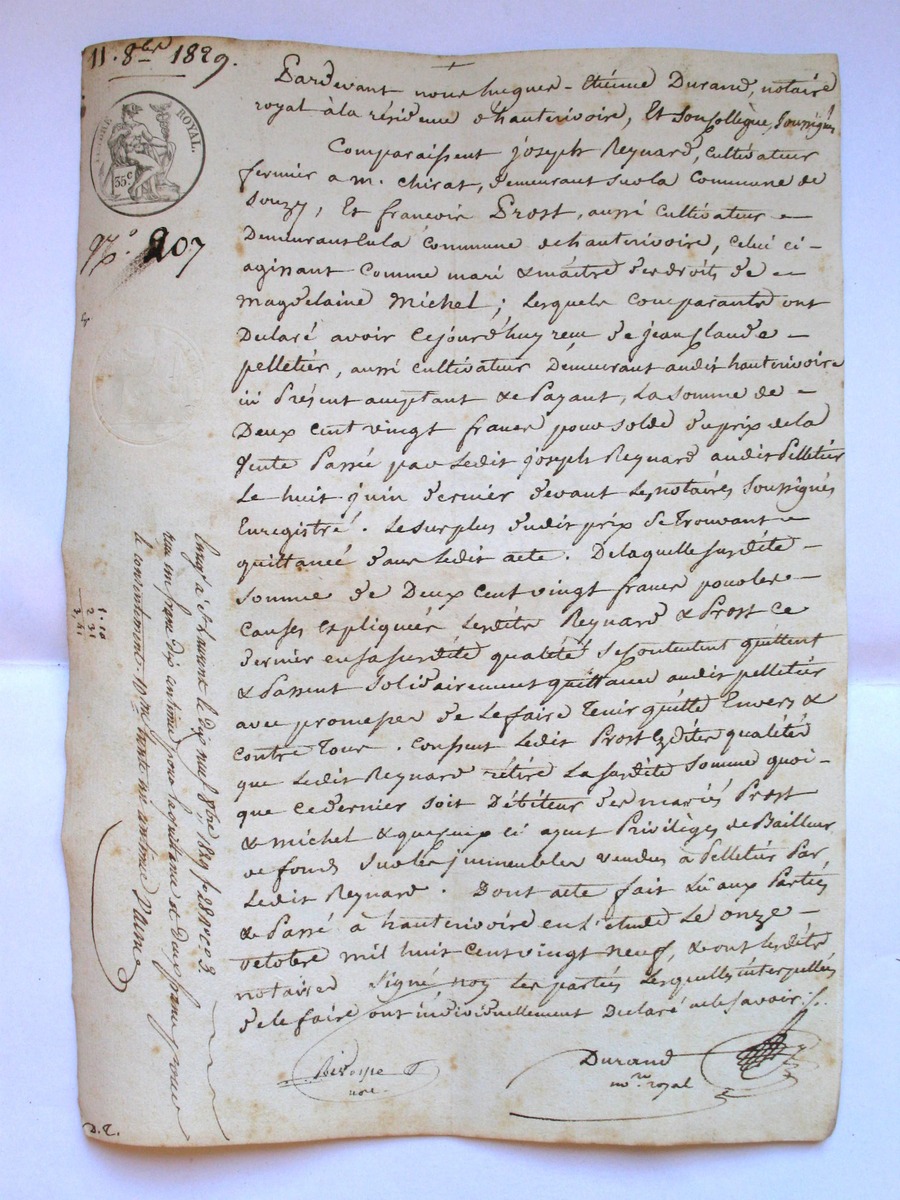 11. 8bre 1829.
TIMBRE ROYAL.
35 c
No. 207
Pardevant nous hugues-Etienne Durand, notaire
royal à la résidence d'hauterivoire, Et son collègue, soussignés
Comparaissent joseph Reynard, cultivateur
fermier a m. chirat, demeurant sur la commune de
Souzy, Et francois Prost, aussi cultivateur
Demeurant en la commune de hauterivoire, celui ci
agissant comme mari & maitre des droits de
magdelaine Michel; lesquels comparants ont
Déclaré avoir cejourd'huy recu de jean Claude
pelletier, aussi cultivateur Demeurant audit hauterivoire
ici Présent acceptant & Payant, la somme de
Deux cent vingt francs pour solde du prix de la
Vente Passée par ledit joseph Reynard audit Pelletier
Le huit juin dernier devant les notaires soussignés
Enregistré. Le surplus dudit prix se trouvant
quittancé dans ledit acte. De laquelle susdite
somme de Deux cent vingt francs pour les
Causes Expliquées lesdits Reynard & Prost ce
dernier en sa susdite qualité se contentent quittent
& Passent solidairement quittance audit pelletier
avec promesse de le faire tenir quitte Envers &
contre Tous. Consent ledit Prost Esdites qualités
que ledit Reynard rétire la susdite somme quoi-
que ce dernier soit Débiteur des mariés Prost
& michel & que ceux ci ayent Privilèges de Bailleur
de fonds sur les immeubles vendus à Pelletier Par
ledit Reynard. Dont acte fait lû aux Parties
& Passé à hauterivoire en l'étude Le onze
octobre mil huit cent vingt neuf, & ont lesdits
notaires signé non les parties lesquelles interpellées
de le faire ont individuellement Declaré ne le savoir ./.
Durand
nore royal
not.
Enregé à St Laurent le dix neuf 8bre 1829 fo 28 Ro c 3
recu un franc dix centimes pour la quittance et deux francs pour
le consentement 10me
1.10
2.31
3,41
D. T.